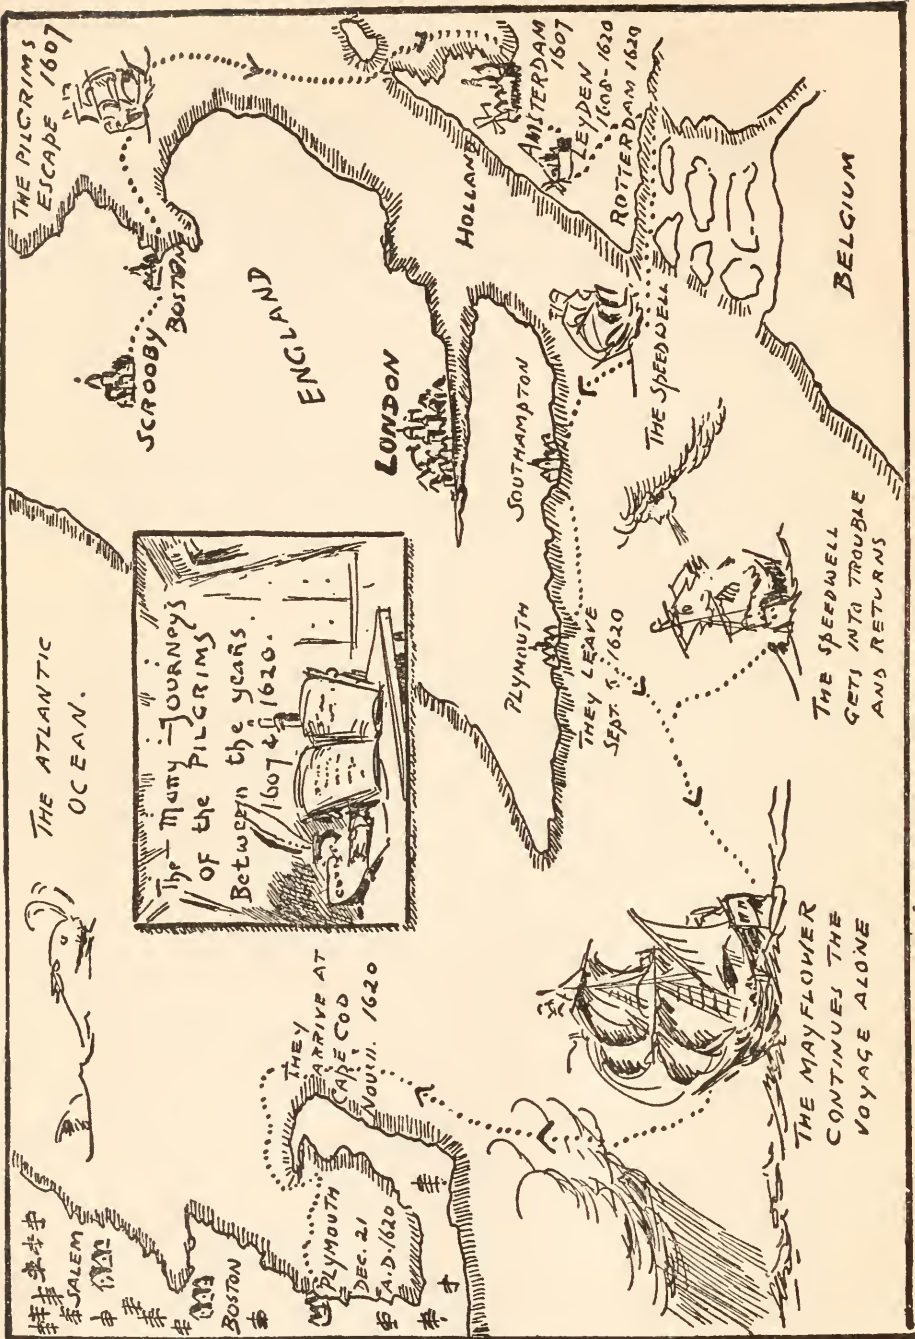 The Many Journeys
of the PILGRIMS
Between the years
1607 & 1620.
THE ATLANTIC
OCEAN.
THE PILGRIMS
ESCAPE 1607
SCROOBY
BOSTON
ENGLAND
LONDON
HOLLAND
AMSTERDAM
1607
LEYDEN
1608-1620
ROTTERDAM 1620
BELGIUM
THE SPEEDWELL
SOUTHAMPTON
PLYMOUTH
THEY LEAVE
SEPT. 6 1620
THE SPEEDWELL
GETS INTO TROUBLE
AND RETURNS
THE MAYFLOWER
CONTINUES THE
VOYAGE ALONE
THEY
ARRIVE AT
CAPE COD
NOV 11. 1620
SALEM
BOSTON
PLYMOUTH
DEC. 21
A.D. 1620